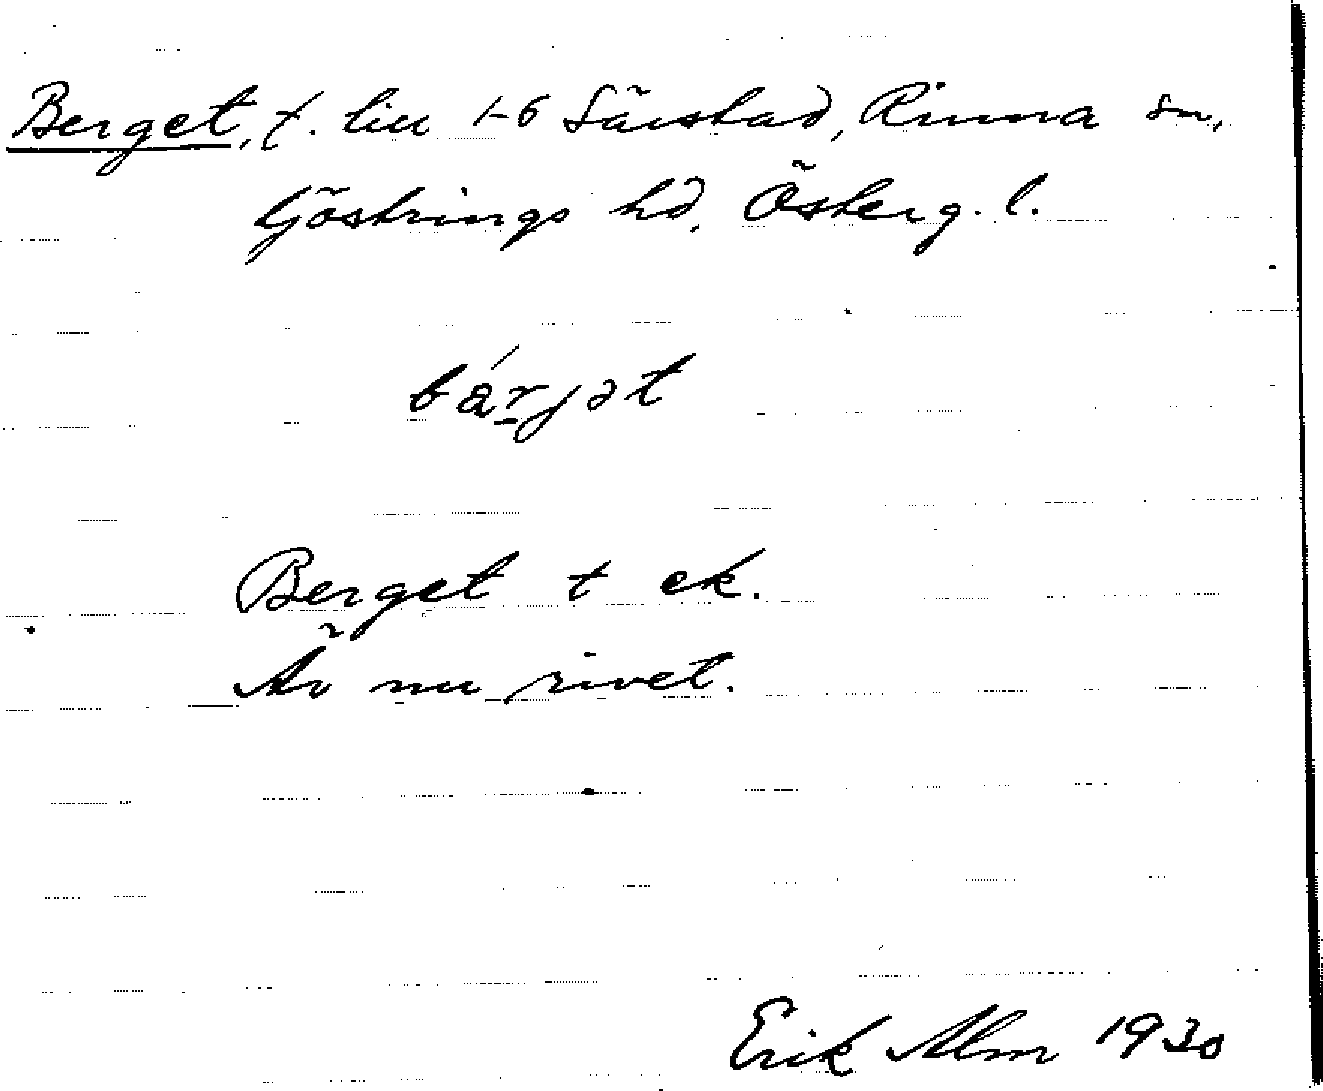 Berget, t. till 1-6 Särstad, Rinna sn,
Göstrings hd, Österg. l.
bárjət
Berget t ek.
Är nu rivet.
Erik Alm 1930